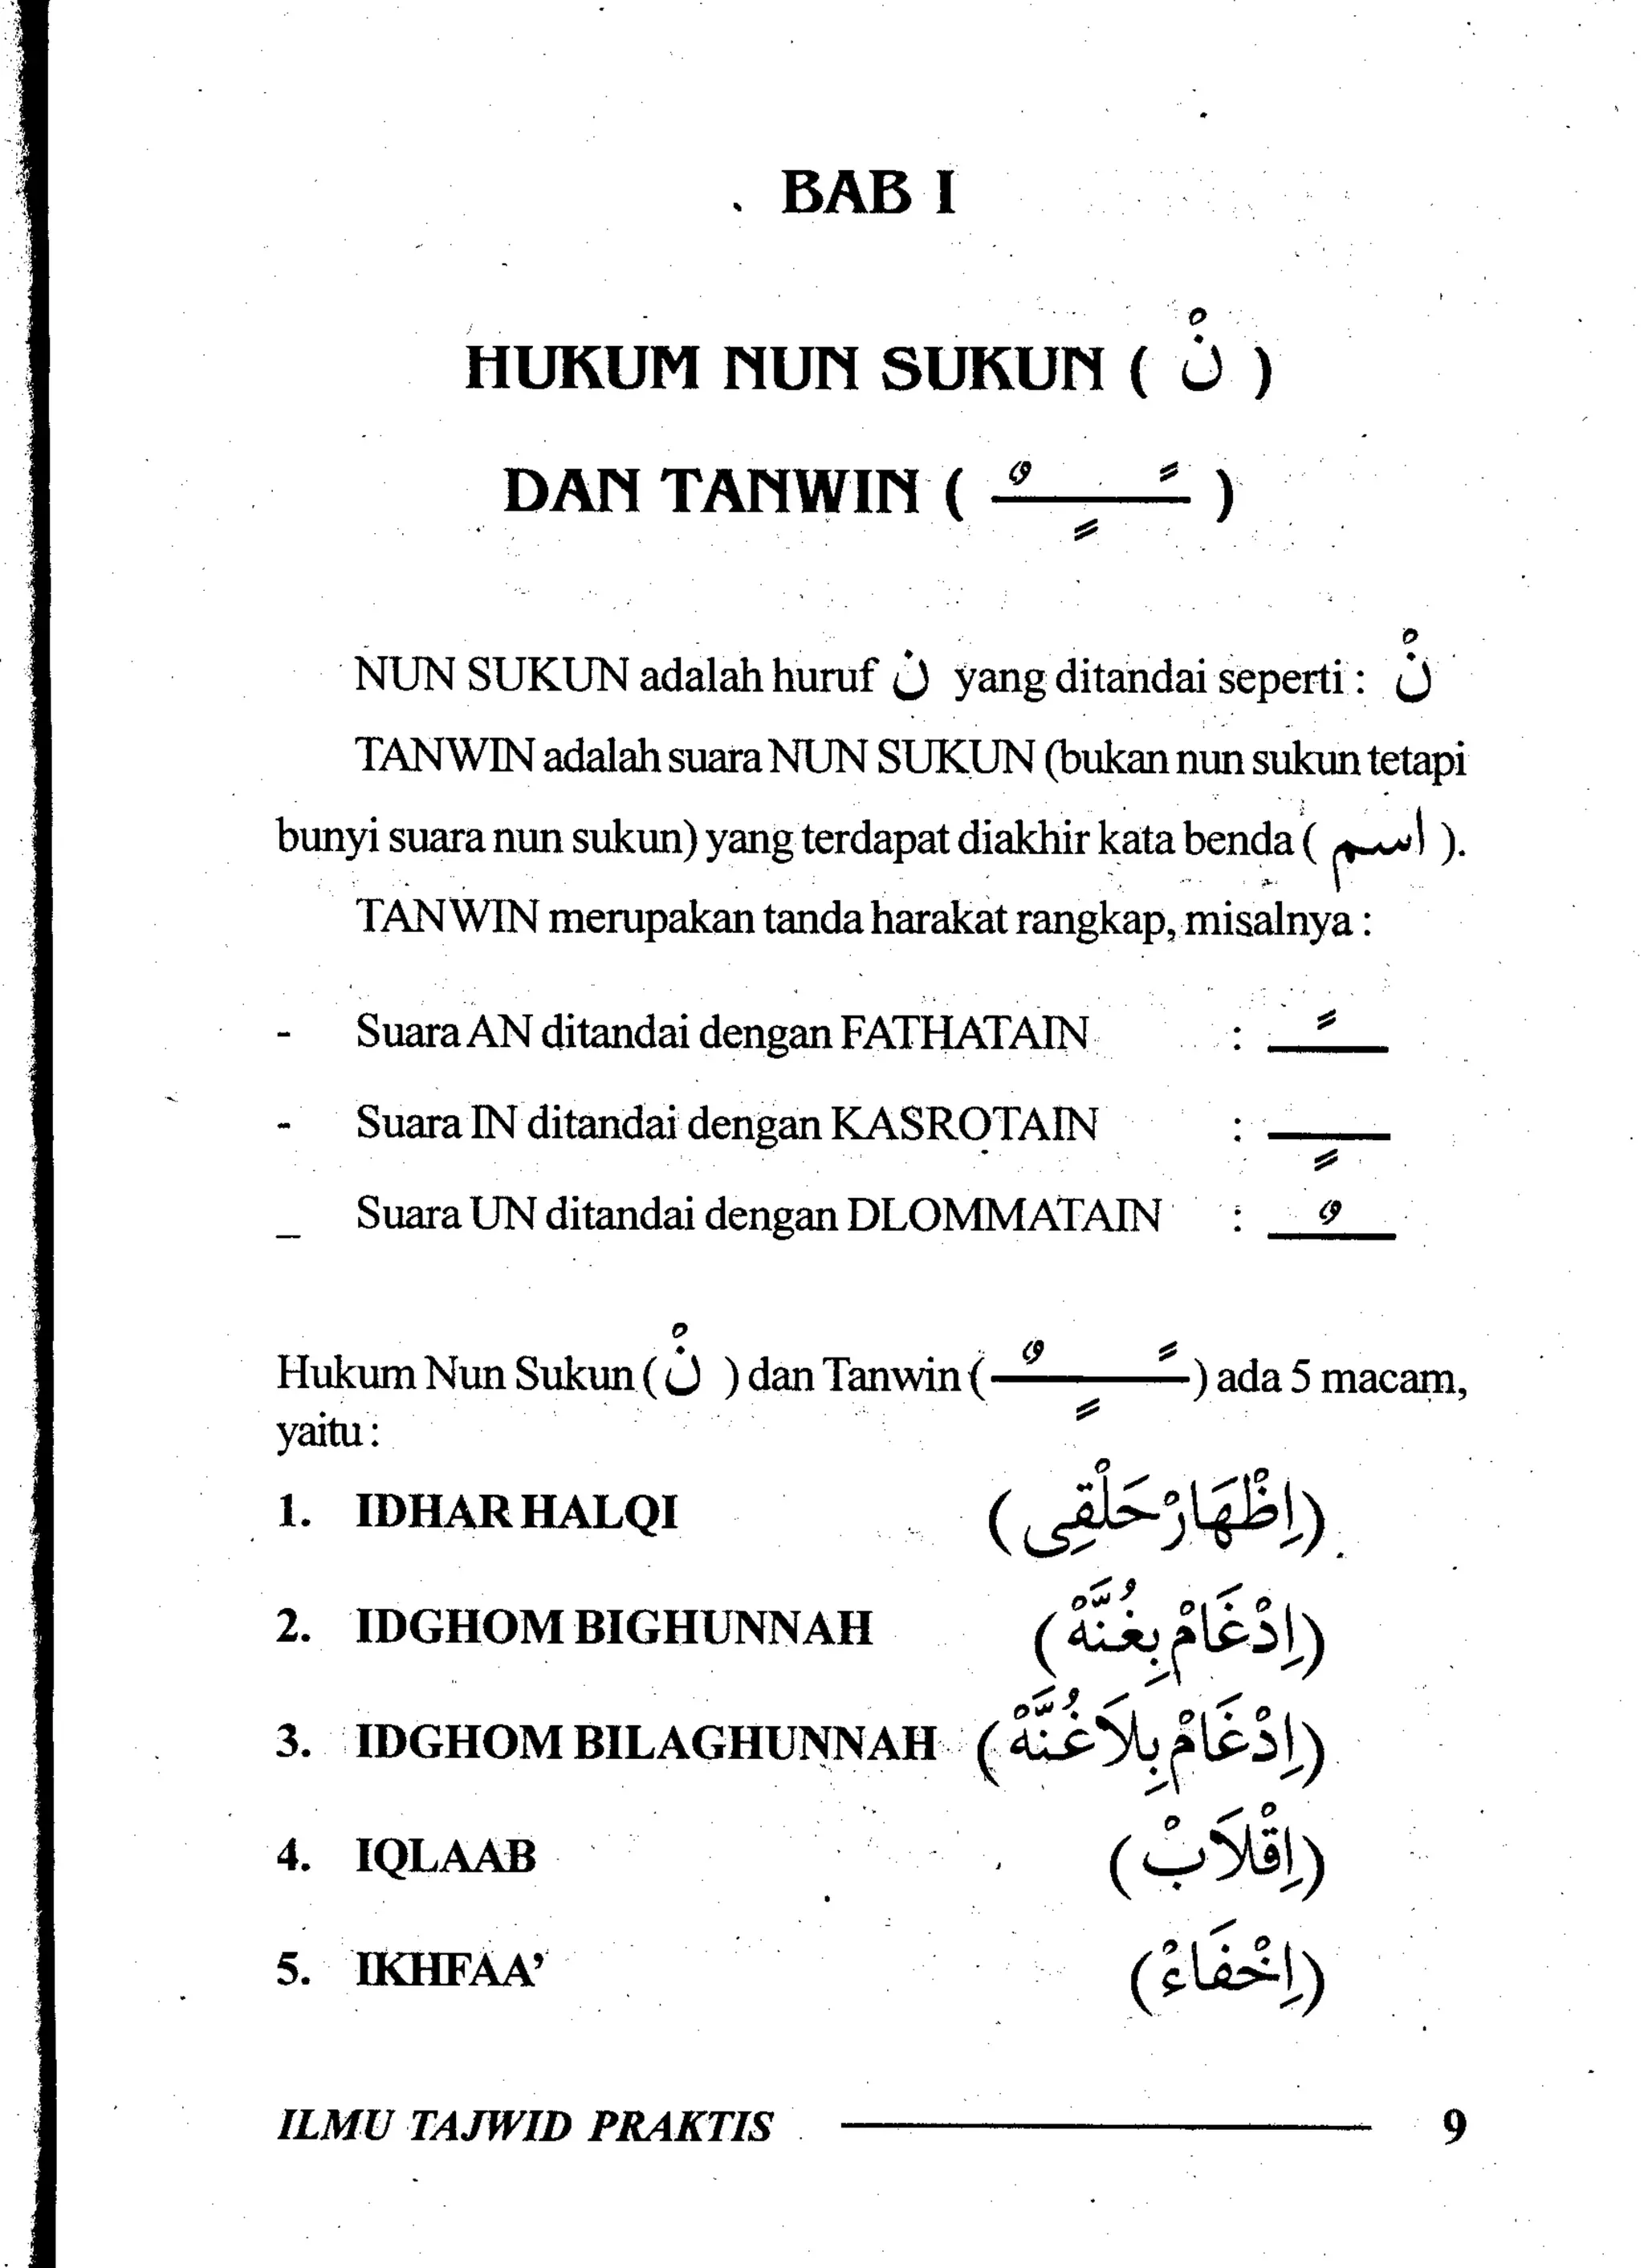 BAB I
HUKUM NUN SUKUN ( نْ )
DAN TANWIN ( ــٌـــٍـــًـ )
NUN SUKUN adalah huruf ن yang ditandai seperti : نْ
TANWIN adalah suara NUN SUKUN (bukan nun sukun tetapi
bunyi suara nun sukun) yang terdapat diakhir kata benda ( اسم ).
TANWIN merupakan tanda harakat rangkap, misalnya :
- Suara AN ditandai dengan FATHATAIN : ـــًـــ
- Suara IN ditandai dengan KASROTAIN : ـــٍـــ
_ Suara UN ditandai dengan DLOMMATAIN : ـــٌـــ
Hukum Nun Sukun ( نْ ) dan Tanwin ( ــٌـــٍـــًـ ) ada 5 macam,
yaitu :
1. IDHAR HALQI (اِظْهَارْحَلْقِى)
2. IDGHOM BIGHUNNAH (اِدْغَامْ بِغُنَّهْ)
3. IDGHOM BILAGHUNNAH (اِدْغَامْ بِلاَغُنَّهْ)
4. IQLAAB (اِقْلاَبْ)
5. IKHFAA’ (اِخْفَاءْ)
ILMU TAJWID PRAKTIS 9